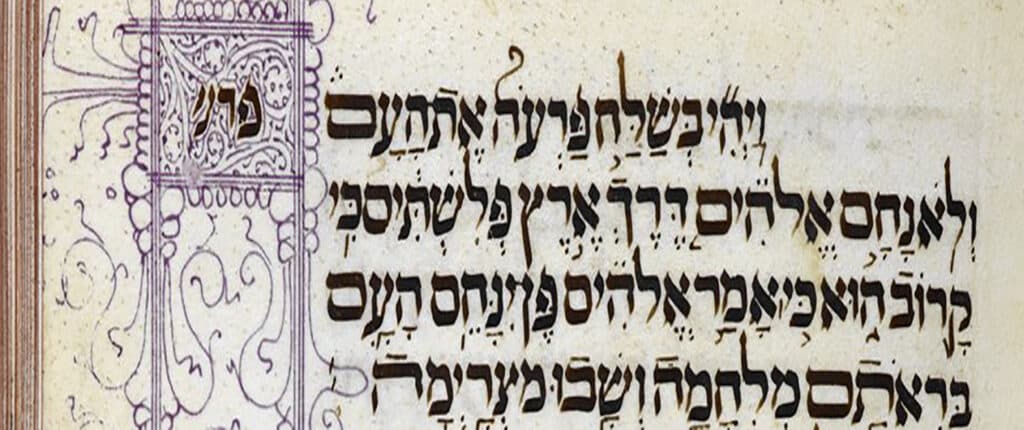 פרש
וַיְהִי בְּשַׁלַּח פַּרְעֹה אֶת הָעָם
וְלֹא נָחָם אֱלֹהִים דֶּרֶךְ אֶרֶץ פְּלִשְׁתִּים כִּי
קָרוֹב הוּא כִּי אָמַר אֱלֹהִים פֶּן יִנָּחֵם הָעָם
בִּרְאֹתָם מִלְחָמָה וְשָׁבוּ מִצְרָיְמָה